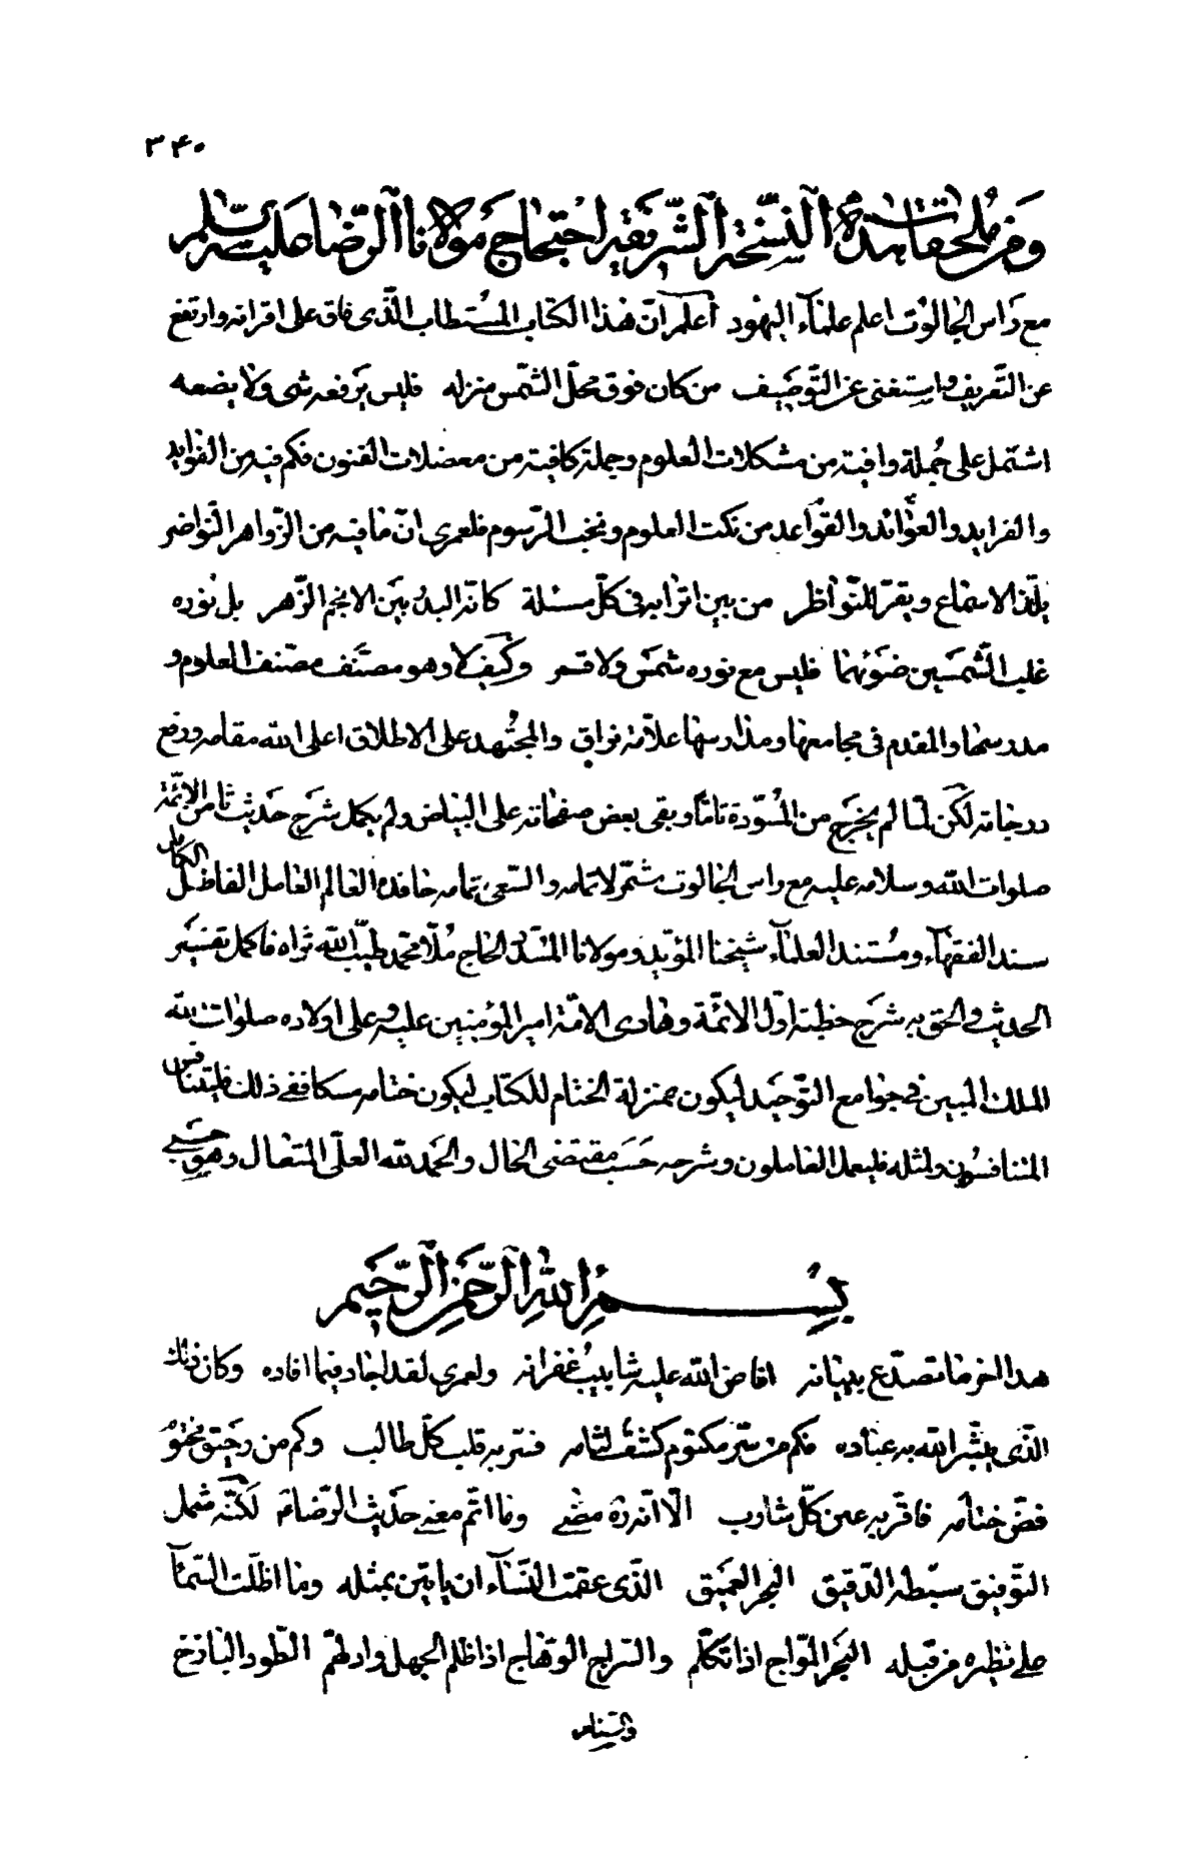 ۳۴۰
ومن ملحقات هذه النسخة الشريفة احتجاج مولانا الرضا عليه
مع رأس الجالوت اعلم علماء اليهود اعلم ان هذا الكتاب المستطاب الذى فاق على اقرانه وارتفع
عن التعريف واستغنى عن التوصيف من كان فوق محل الشمس منزله فليس يرفعه شى ولا يضعه
اشتمل على جملة وافية من مشكلات العلوم وجملة كافية من معضلات الفنون فكم فيه من الفوايد
والفرايد والعوائد والقواعد من نكت العلوم ونخب الرسوم فلعمرى ان ما فيه من الزواهر النواضر
يلتذ الاسماع ويقر النواظر من بين اترابه فى كل مسئلة كانه البدر بين الانجم الزهر بل نوره
غلب الشمسين ضوئهما فليس مع نوره شمس ولا قمر وكيف لا وهو مصنف مصنف العلوم و
مدرسها والمقدم فى مجامعها ومدارسها علامة نراق والمجتهد على الاطلاق اعلى الله مقامه ورفع
درجاته لكن لما لم يخرج من المسودة تاما وبقى بعض صفحاته على البياض ولم يكمل شرح حديث ثامن الائمة
صلوات الله وسلامه عليه مع راس الجالوت شمر لاتمامه والسعى بتمامه حافده العالم العامل الفاضل الكامل
سند الفقهاء ومستند العلماء شيخنا المؤيد ومولانا المسدد الحاج ملا محمد طيب الله ثراه فاكمل تفسير
الحديث والحق به شرح خطبة اول الائمة وهادى الامة امير المؤمنين عليه وعلى اولاده صلوات الله
الملك المبين فى جوامع التوحيد ليكون بمنزلة الختام للكتاب ليكون ختامه مسكا ففى ذلك فليتنافس
المتنافسون ولمثله فليعمل العاملون وشرحه حسب مقتضى الحال والحمد لله العلى المتعال وهو حسبى
بسم الله الرحمن الرحيم
هذا اخر ما تصدع ببيانه افاض الله عليه شابيب غفرانه ولعمرى لقد اجاد فيما افاده وكان ذلك
الذى يبشر الله به عباده فكم من سر مكتوم كشف لثامه فسر به قلب كل طالب وكم من رحيق مختوم
فض ختامه فاقر به عين كل شارب الا انه ره مضى وما اتم معنى حديث الرضا لكنه شمل
التوفيق سبطه الدقيق البحر العميق الذى عقمت النساء ان ياتين بمثله وما اظلت السماء
على نظيره من قبله البحر المواج اذا تكلم والسراج الوهاج اذا ظلم الجهل وادلهم الطود الباذخ
والسنام